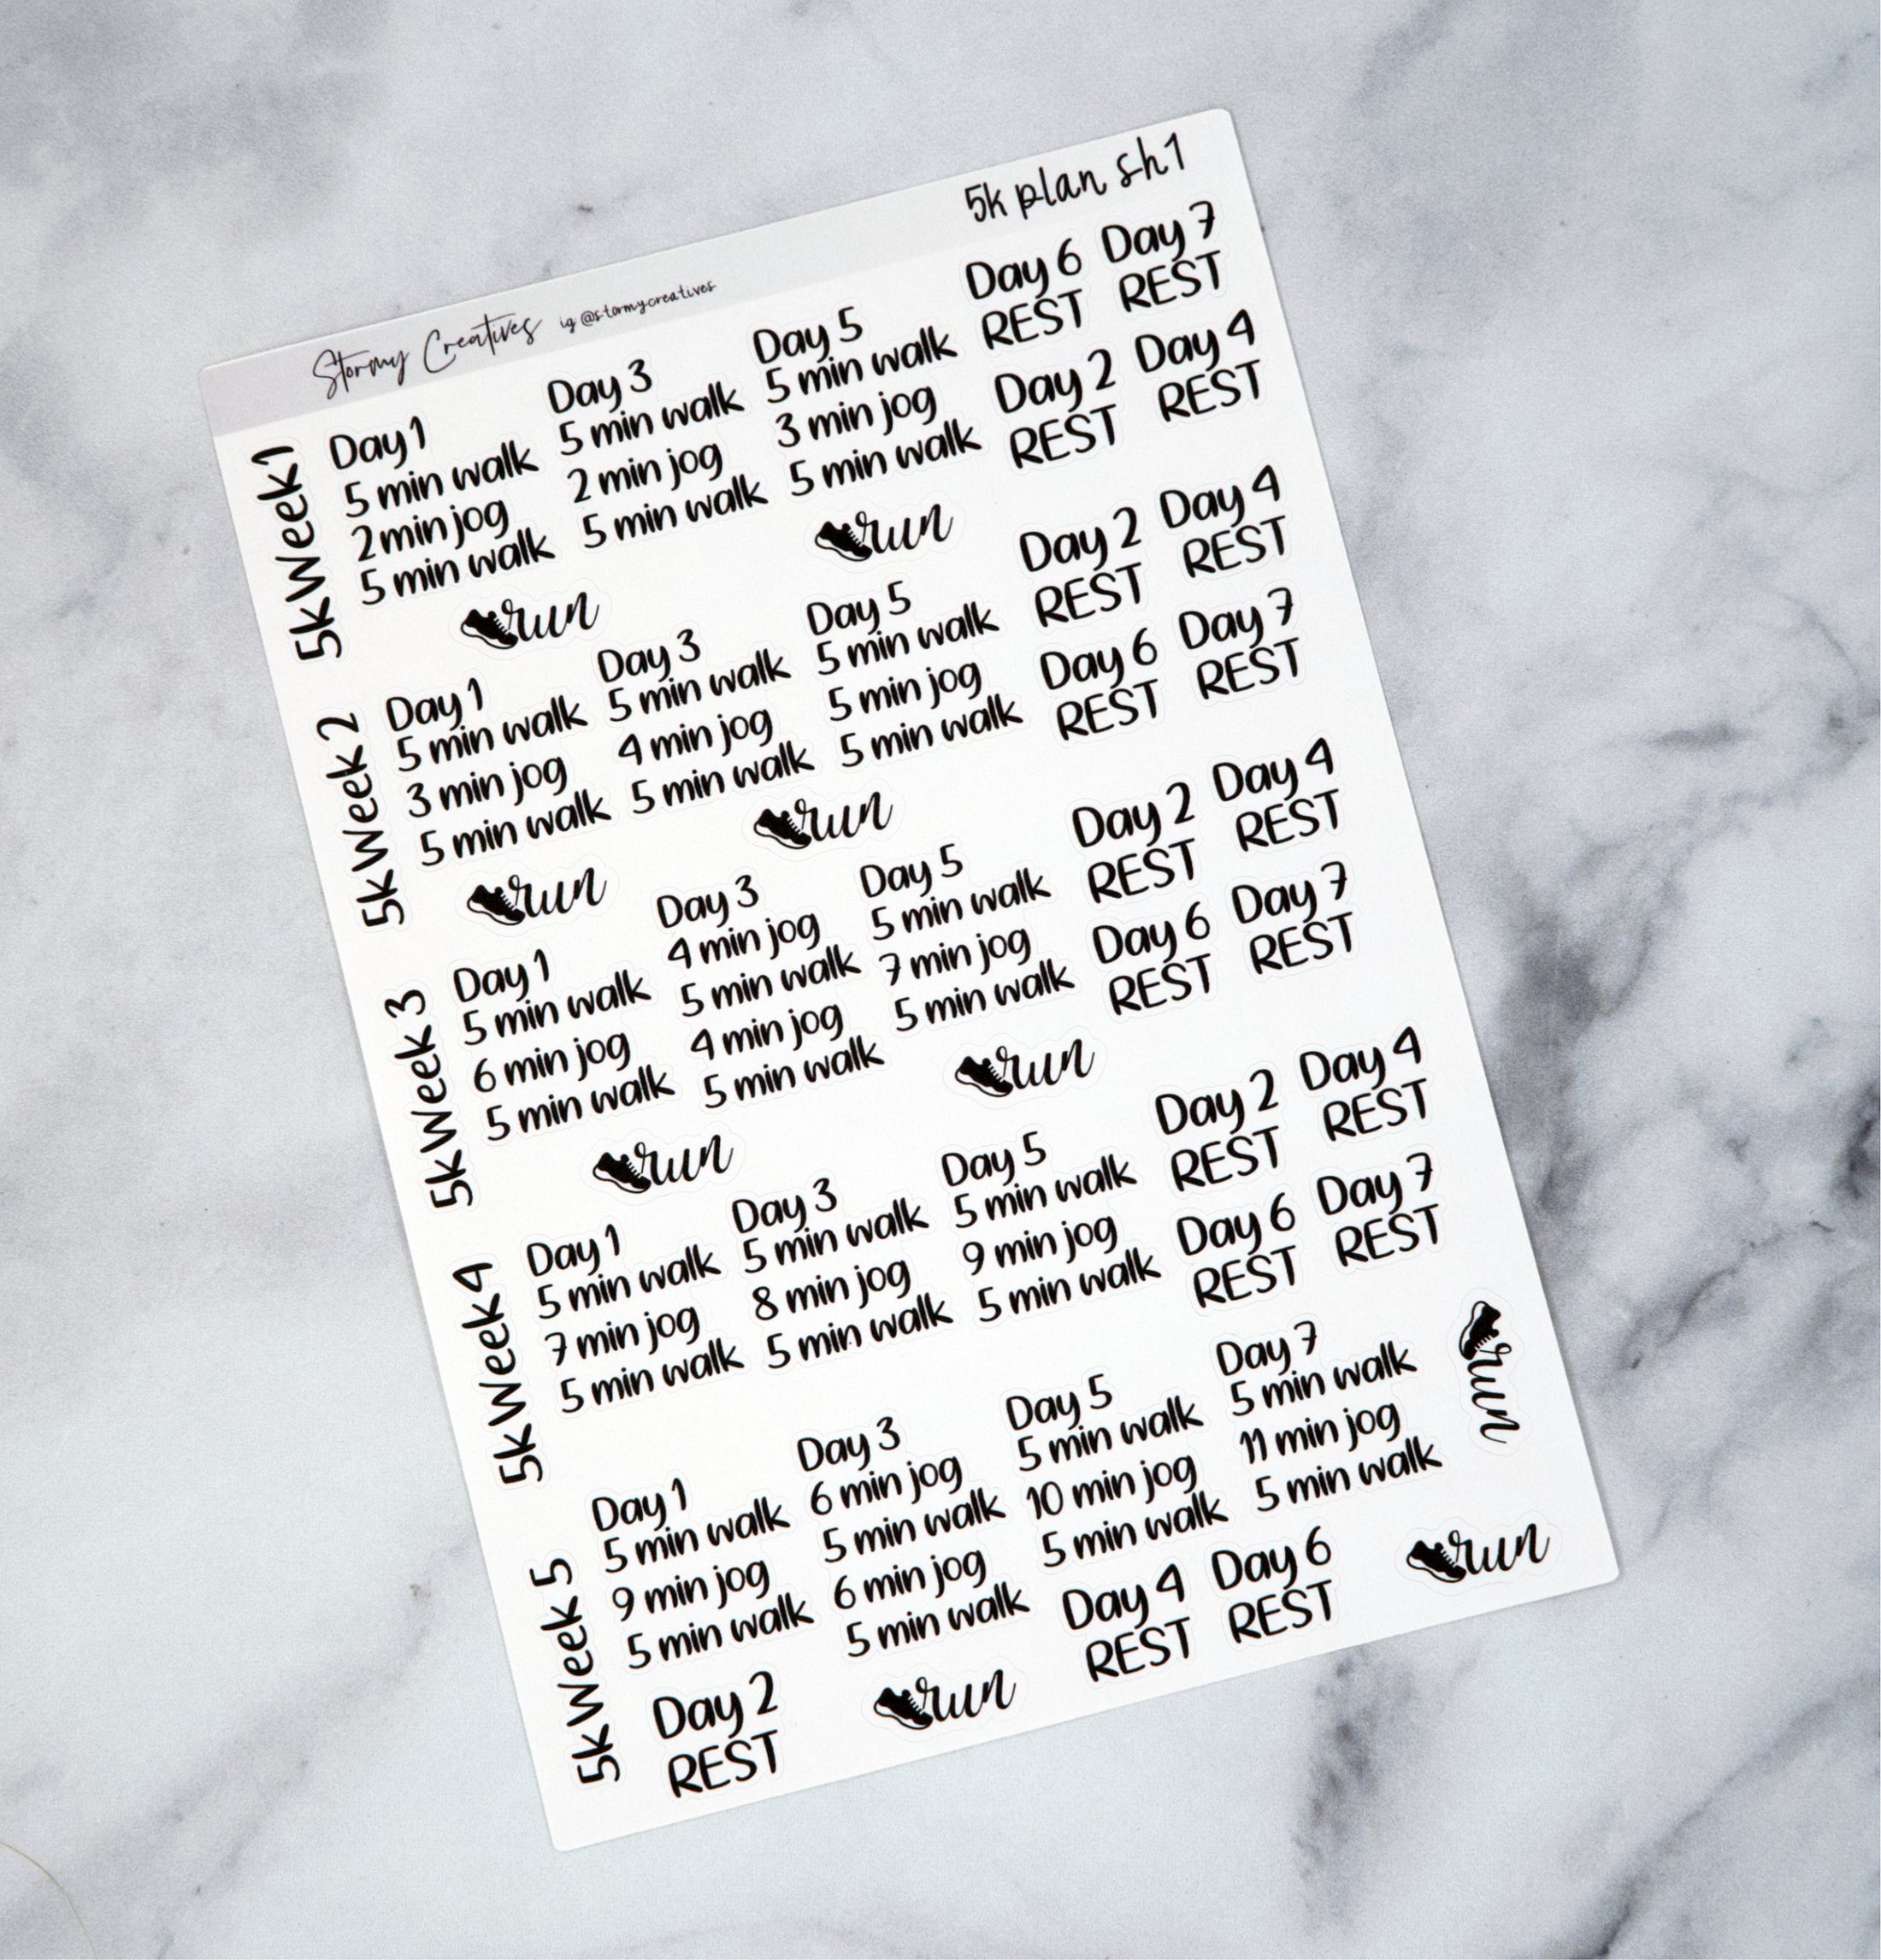 5k plan sh1
Stormy Creatives ig @stormycreatives
5k Week 1
Day 1
5 min walk
2 min jog
5 min walk
Day 3
5 min walk
2 min jog
5 min walk
Day 5
5 min walk
3 min jog
5 min walk
Day 6
REST
Day 7
REST
Day 2
REST
Day 4
REST
run
run
5k Week 2
Day 1
5 min walk
3 min jog
5 min walk
Day 3
5 min walk
4 min jog
5 min walk
Day 5
5 min walk
5 min jog
5 min walk
Day 2
REST
Day 4
REST
Day 6
REST
Day 7
REST
run
run
5k Week 3
Day 1
5 min walk
6 min jog
5 min walk
Day 3
4 min jog
5 min walk
4 min jog
5 min walk
Day 5
5 min walk
7 min jog
5 min walk
Day 2
REST
Day 4
REST
Day 6
REST
Day 7
REST
run
run
5k Week 4
Day 1
5 min walk
7 min jog
5 min walk
Day 3
5 min walk
8 min jog
5 min walk
Day 5
5 min walk
9 min jog
5 min walk
Day 2
REST
Day 4
REST
Day 6
REST
Day 7
REST
5k Week 5
Day 1
5 min walk
9 min jog
5 min walk
Day 3
6 min jog
5 min walk
6 min jog
5 min walk
Day 5
5 min walk
10 min jog
5 min walk
Day 7
5 min walk
11 min jog
5 min walk
run
Day 2
REST
run
Day 4
REST
Day 6
REST
run